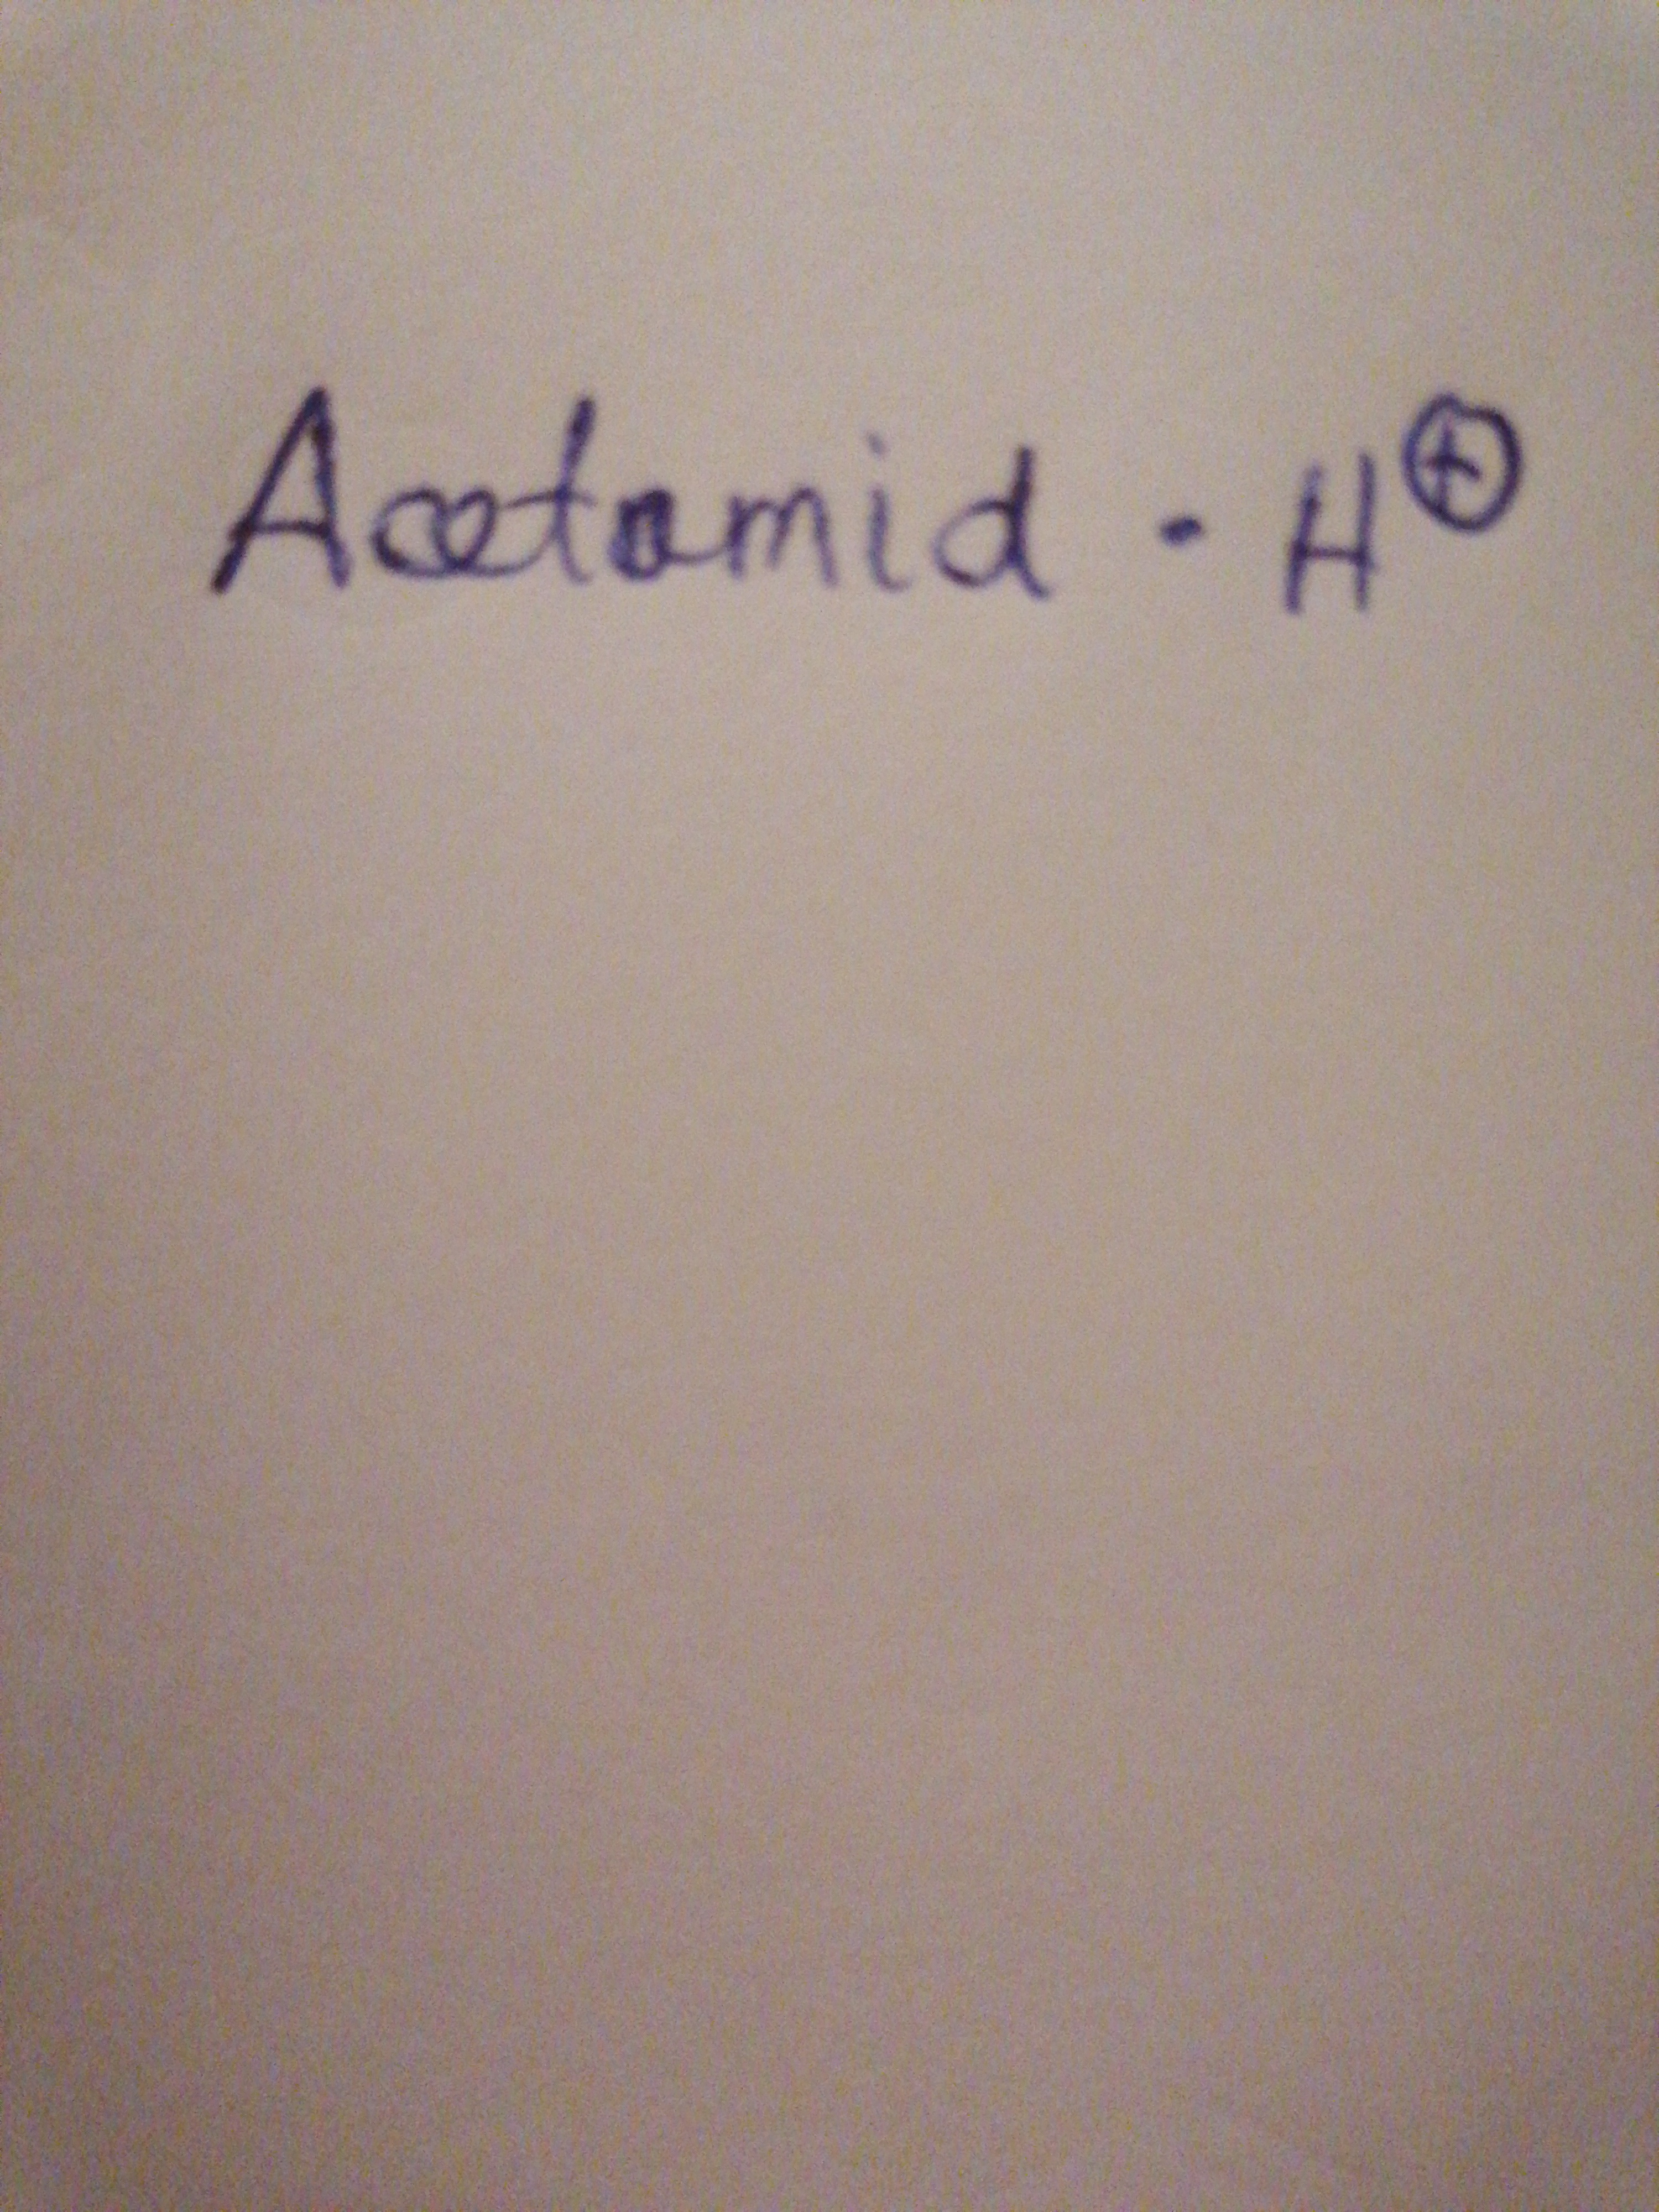 Acetamid · H⊕